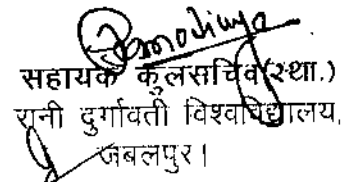 सहायक कुलसचिव(स्था.)
रानी दुर्गावती विश्वविद्यालय,
जबलपुर।